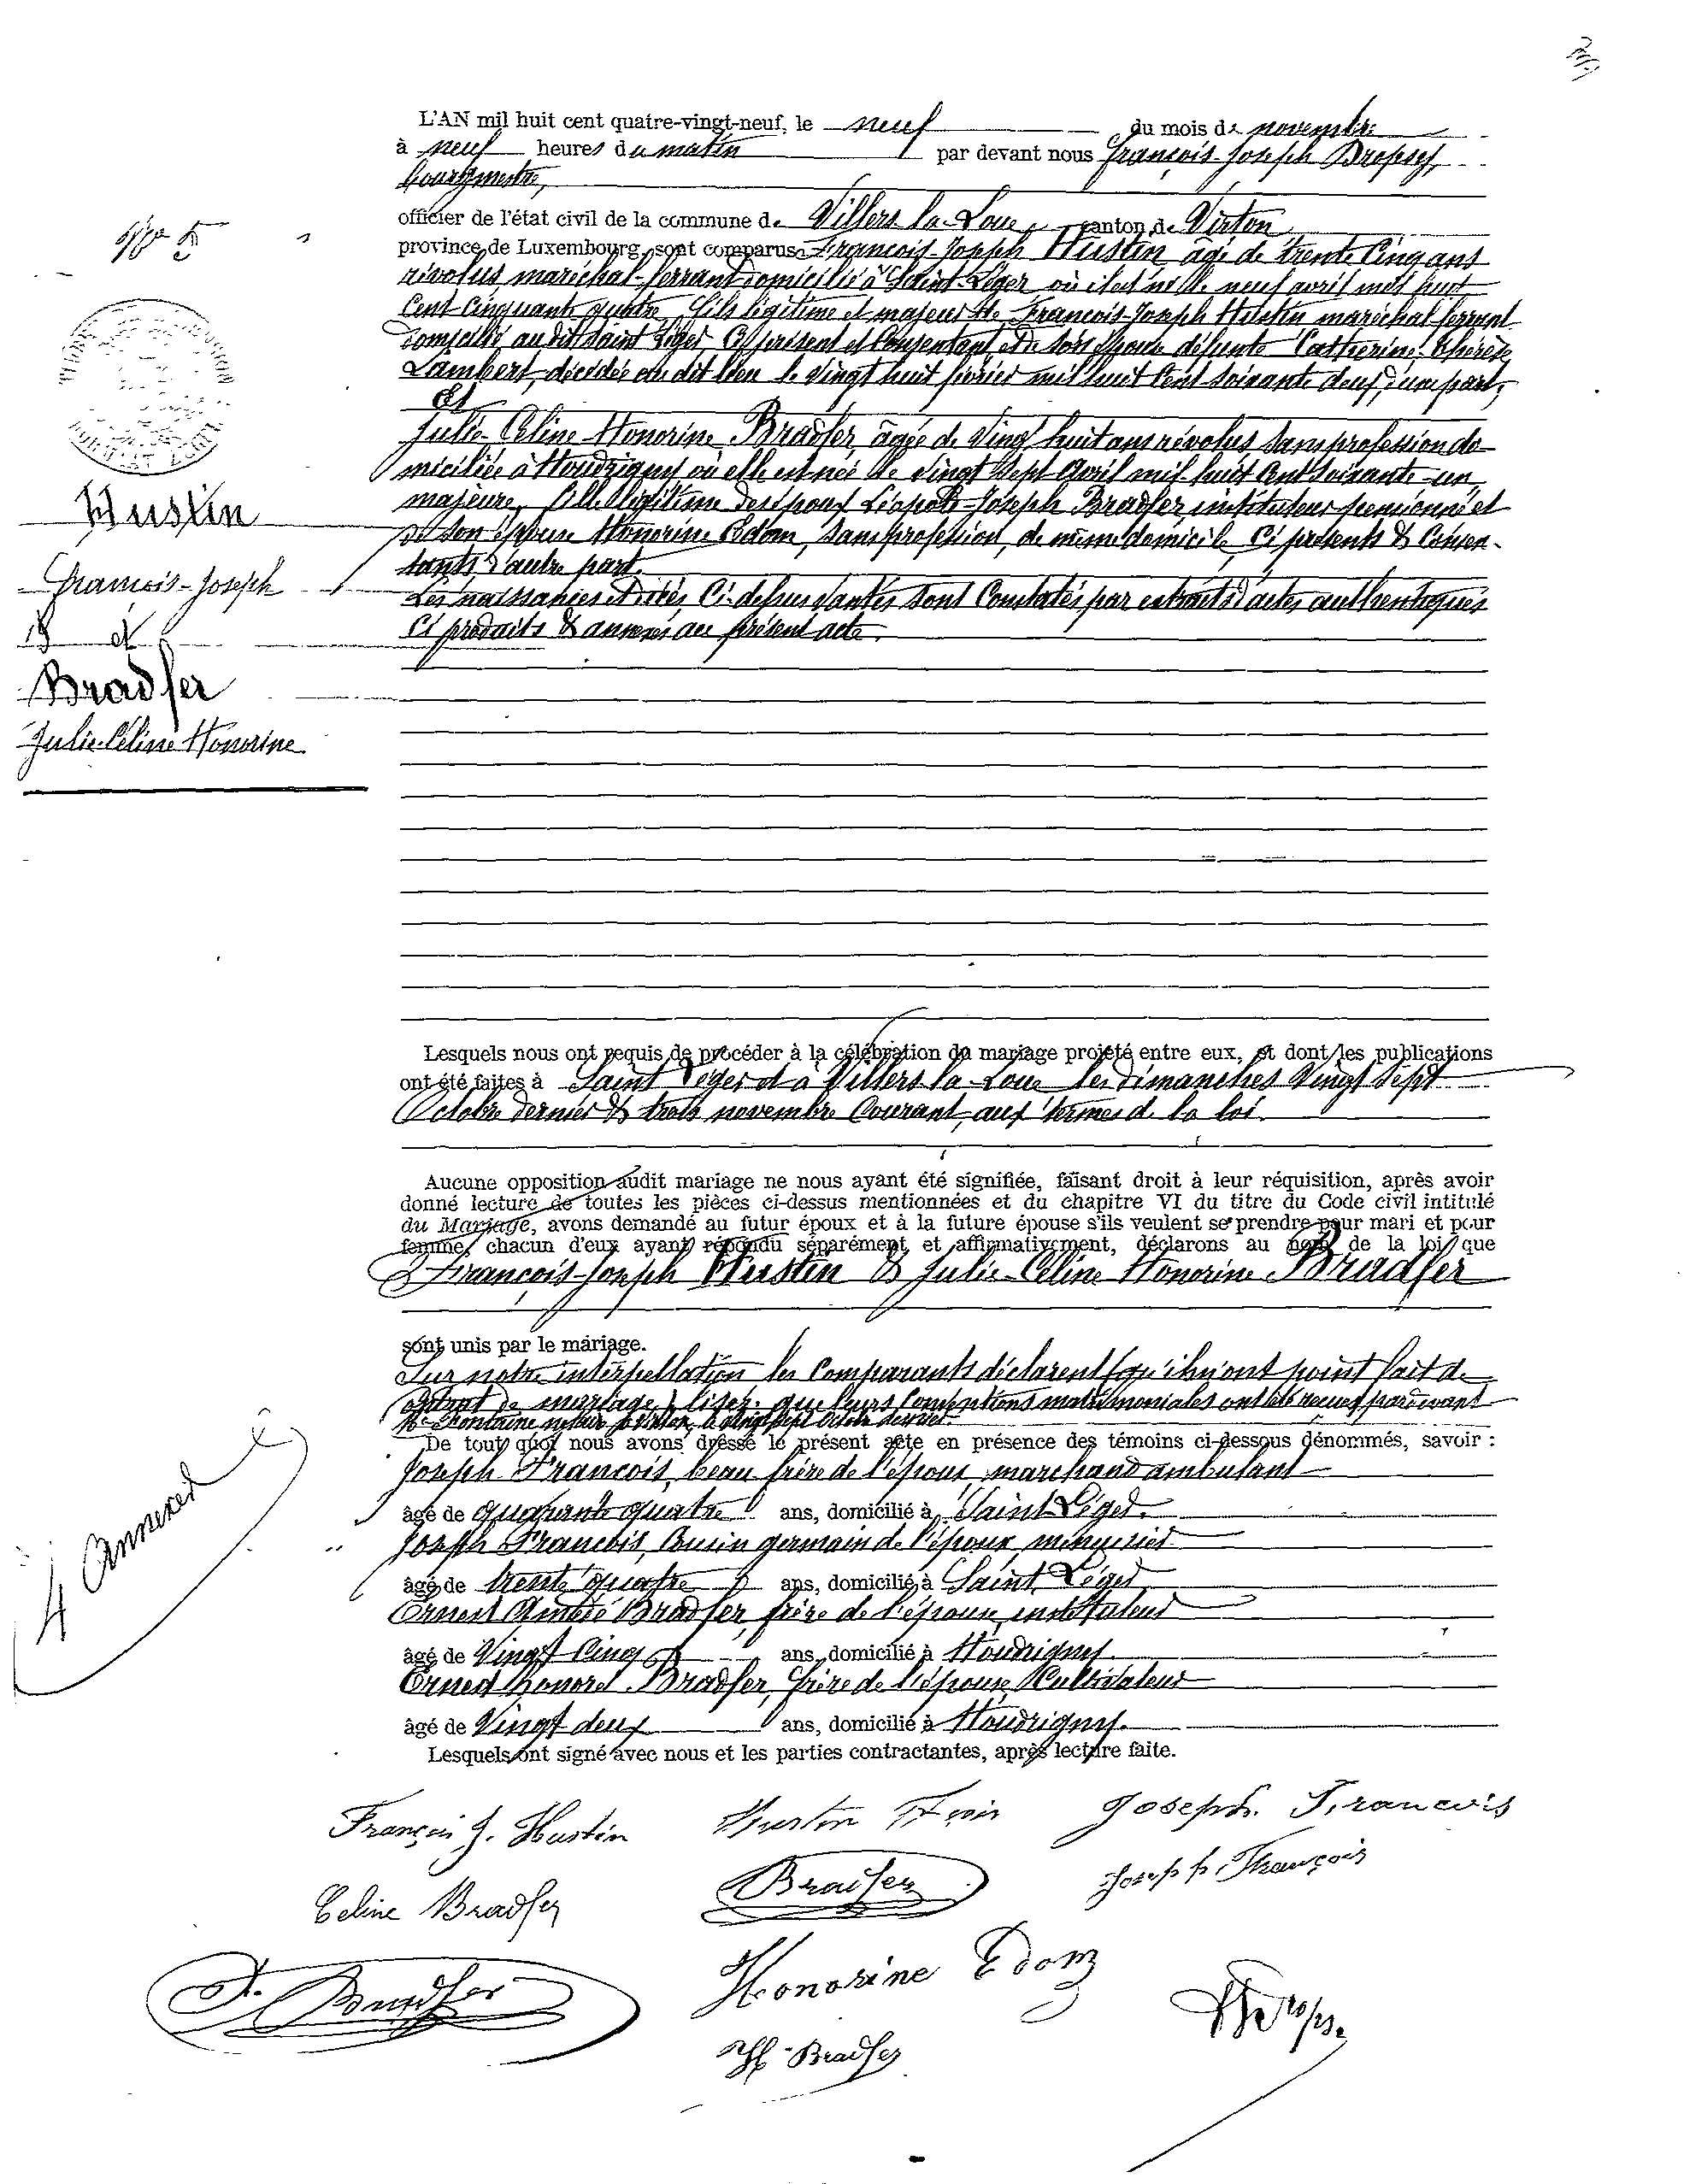 L'AN mil huit cent quatre-vingt-neuf, le neuf du mois de novembre
à neuf heures du matin par devant nous François-Joseph Dropsy,
bourgmestre,
officier de l'état civil de la commune de Villers la-Loue, canton de Virton
province de Luxembourg, sont comparus François-Joseph Hustin âgé de trente Cinq ans
révolus, maréchal-ferrant domicilié à Saint-Léger où il est né le neuf avril mil huit
Cent Cinquante quatre, fils légitime et majeur de François-Joseph Hustin maréchal ferrant
domicilié au dit Saint Léger, Ci présent et Consentant et de son épouse défunte Catherine Thérèse
Lambert, décédée au dit lieu le vingt huit février mil huit Cent soixante deux, d'une part,
Et
Julie-Céline Honorine Bradfer, âgée de Vingt huit ans révolus sans profession do
miciliée à Houdrigny où elle est née le vingt Sept Avril mil huit Cent Soixante un,
majeure, fille légitime des époux Léopold-Joseph Bradfer, instituteur pensionné et
de son épouse Honorine Edom, sans profession, de même domicile, Ci présents & Consen-
tants d'autre part.
Les naissances et décès Ci-dessus vantés sont Constatés par extraits d'actes authentiques
Ci produits & annexés au présent acte.
No 5
Hustin
François-Joseph
&
Bradfer
Julie-Céline Honorine
Lesquels nous ont requis de procéder à la célébration du mariage projeté entre eux, et dont les publications
ont été faites à Saint Léger et à Villers la-Loue les dimanches Vingt Sept
Octobre dernier & trois novembre Courant, aux termes de la loi.
Aucune opposition audit mariage ne nous ayant été signifiée, faisant droit à leur réquisition, après avoir
donné lecture de toutes les pièces ci-dessus mentionnées et du chapitre VI du titre du Code civil intitulé
du Mariage, avons demandé au futur époux et à la future épouse s'ils veulent se prendre pour mari et pour
femme, chacun d'eux ayant répondu séparément et affirmativement, déclarons au nom de la loi que
François-Joseph Hustin & Julie-Céline Honorine Bradfer
sont unis par le mariage.
Sur notre interpellation les Comparants déclarent qu'ils n'ont point fait de
Contrat de mariage, lisez: que leurs Conventions matrimoniales ont été reçues par devant
Me notaire à Virton, le vingt sept octobre dernier.
De tout quoi nous avons dressé le présent acte en présence des témoins ci-dessous dénommés, savoir :
Joseph François, beau frère de l'époux, marchand ambulant
âgé de quarante quatre ans, domicilié à Saint Léger.
Joseph François, Cousin germain de l'époux, menuisier
âgé de trente quatre ans, domicilié à Saint Léger
Ernest Aimé Bradfer, frère de l'épouse, instituteur
âgé de Vingt Cinq ans, domicilié à Houdrigny.
Ernest Honoré Bradfer, frère de l'épouse, Cultivateur
âgé de Vingt deux ans, domicilié à Houdrigny.
Lesquels ont signé avec nous et les parties contractantes, après lecture faite.
4 Annexes
François J. Hustin Hustin Fçois Joseph. François
Celine Bradfer Bradfer Joseph François
Bradfer Honorine Edom
H. Bradfer Dropsy